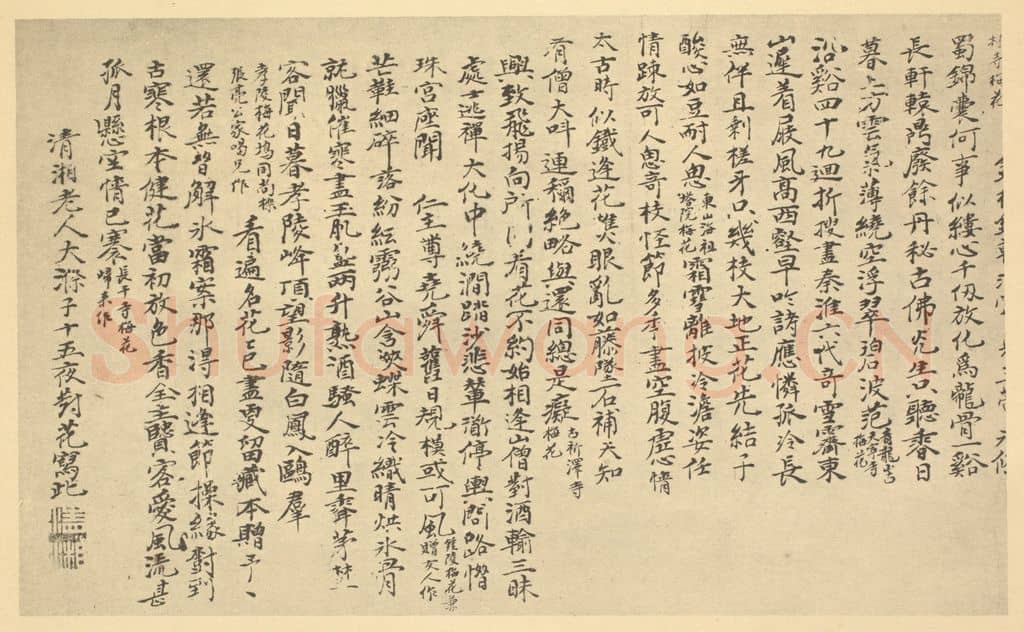 蜀錦囊何事似縷心千仭放化為龍骨一谿
長軒轅舊廢餘丹秘古佛光生只聽香日
暮上方雲氣薄繞空浮翠泊波光 青龍山古天寧寺梅花
沿谿四十九迴折搜盡秦淮六代奇雪霽東
山遲着屐風高西壑早吟詩應憐孤冷長
無伴且剩槎牙只幾枝大地正花先結子
酸心如豆耐人思 東山海祖塔院梅花 霜雪離披冷澹姿任
情踈放可人思奇枝怪節多季盡空腹虛心情
太古時似鐵逢花驚眼亂如藤墜石補天知
有僧大叫連稱絕略與還同總是癡 古祈澤寺梅花
興致飛揚向所聞看花不約始相逢山僧對酒輸三昧
處士逃禪大化中繞澗踏沙悲輦漸停輿問路憯
珠宮座聞 仁主尊堯舜舊日規模或可風 鍾陵梅花兼贈友人作
芒鞋細碎落紛紜霧谷山含葬蝶雲冷織晴烘冰骨
就獵催寒盡玉肌益兩升熟酒騷人醉里聾茅
客聞日暮孝陵峰頂望影隨白鳳入鷗羣
孝陵梅花塢同尚標張亮公家喝兄作
看遍名花意已盡更留藏本贈予
還若無皆解冰霜案那得相逢節操緣對到
古寒根本健花當初放色香全主賢客愛風流甚
孤月懸空情已寒 長干寺梅花歸來作
清湘老人大滌子十五夜對花寫此
Shufawang.CN